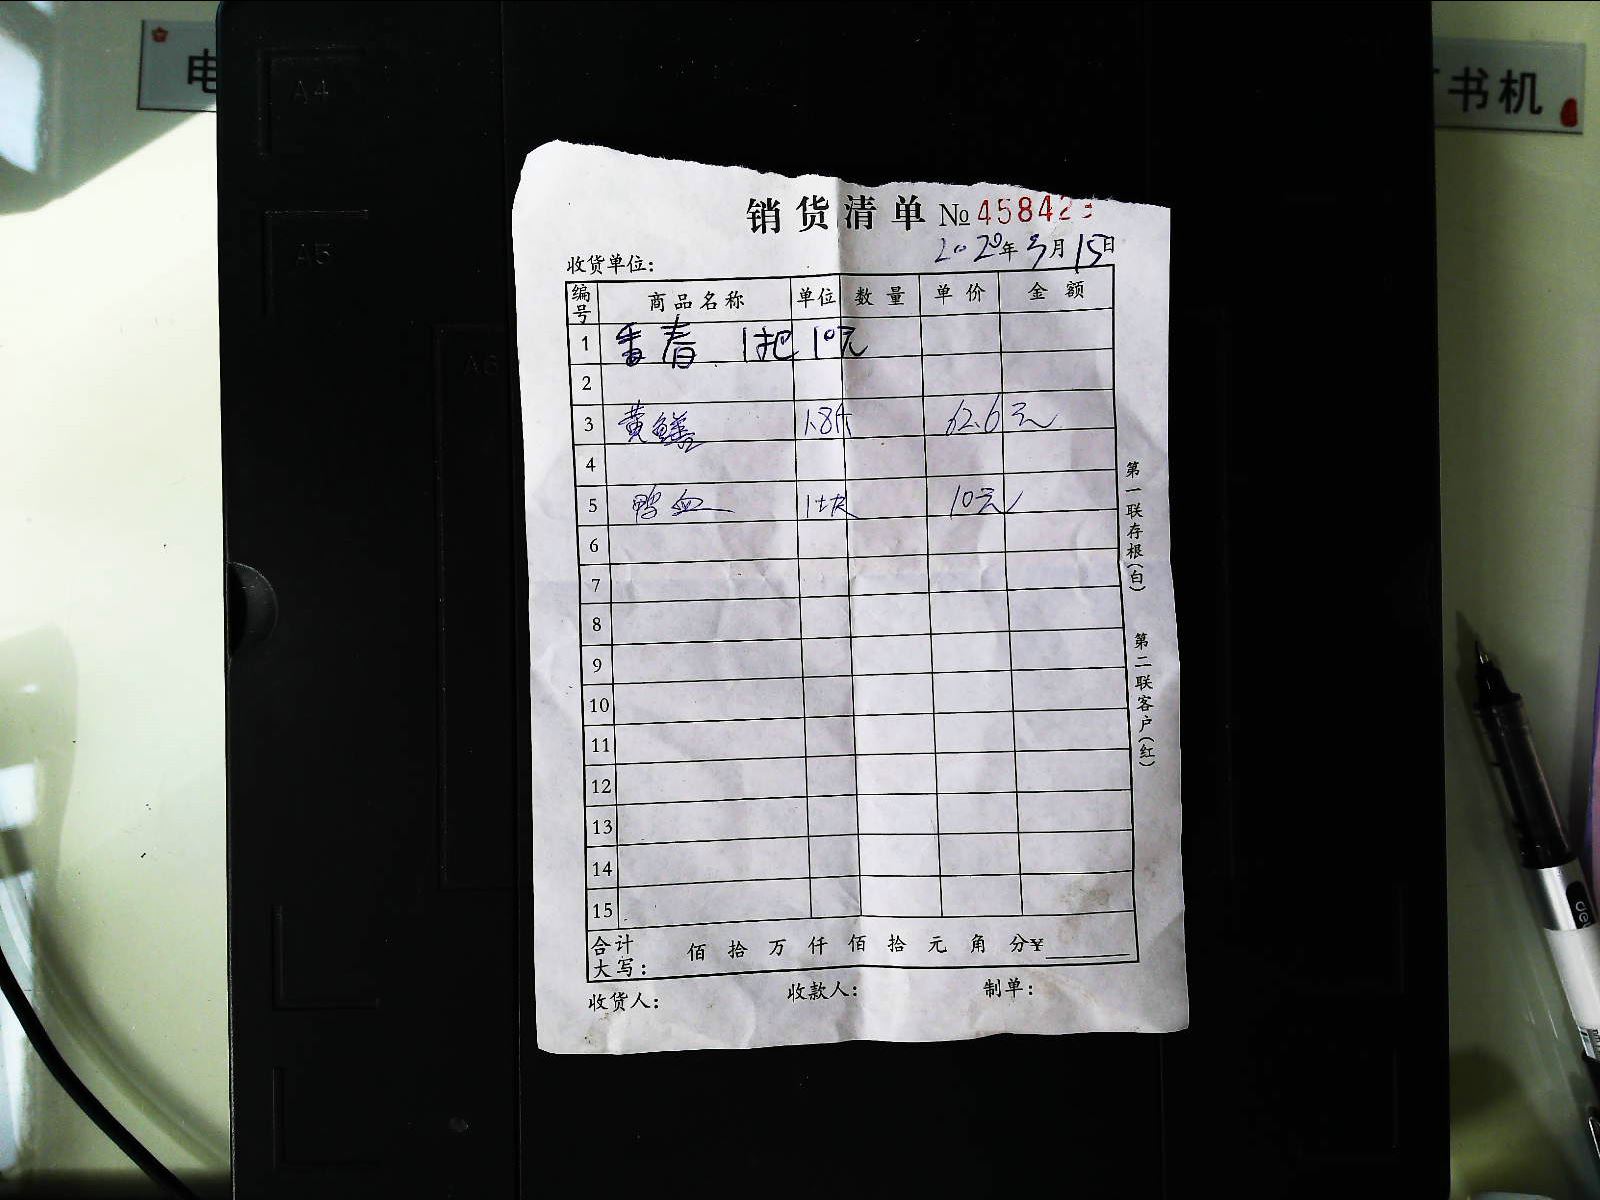 电
书机
A4
A5
A6
销货清单 №458423
收货单位: 2020年3月15日
编号 商品名称 单位 数量 单价 金额
1 香春 1把 10元
2
3 黄鳝 1.8斤 62.6元
4
5 鸭血 1块 10元
6
7
8
9
10
11
12
13
14
15
合计大写: 佰 拾 万 仟 佰 拾 元 角 分¥
收货人: 收款人: 制单:
第一联存根(白)
第二联客户(红)
de